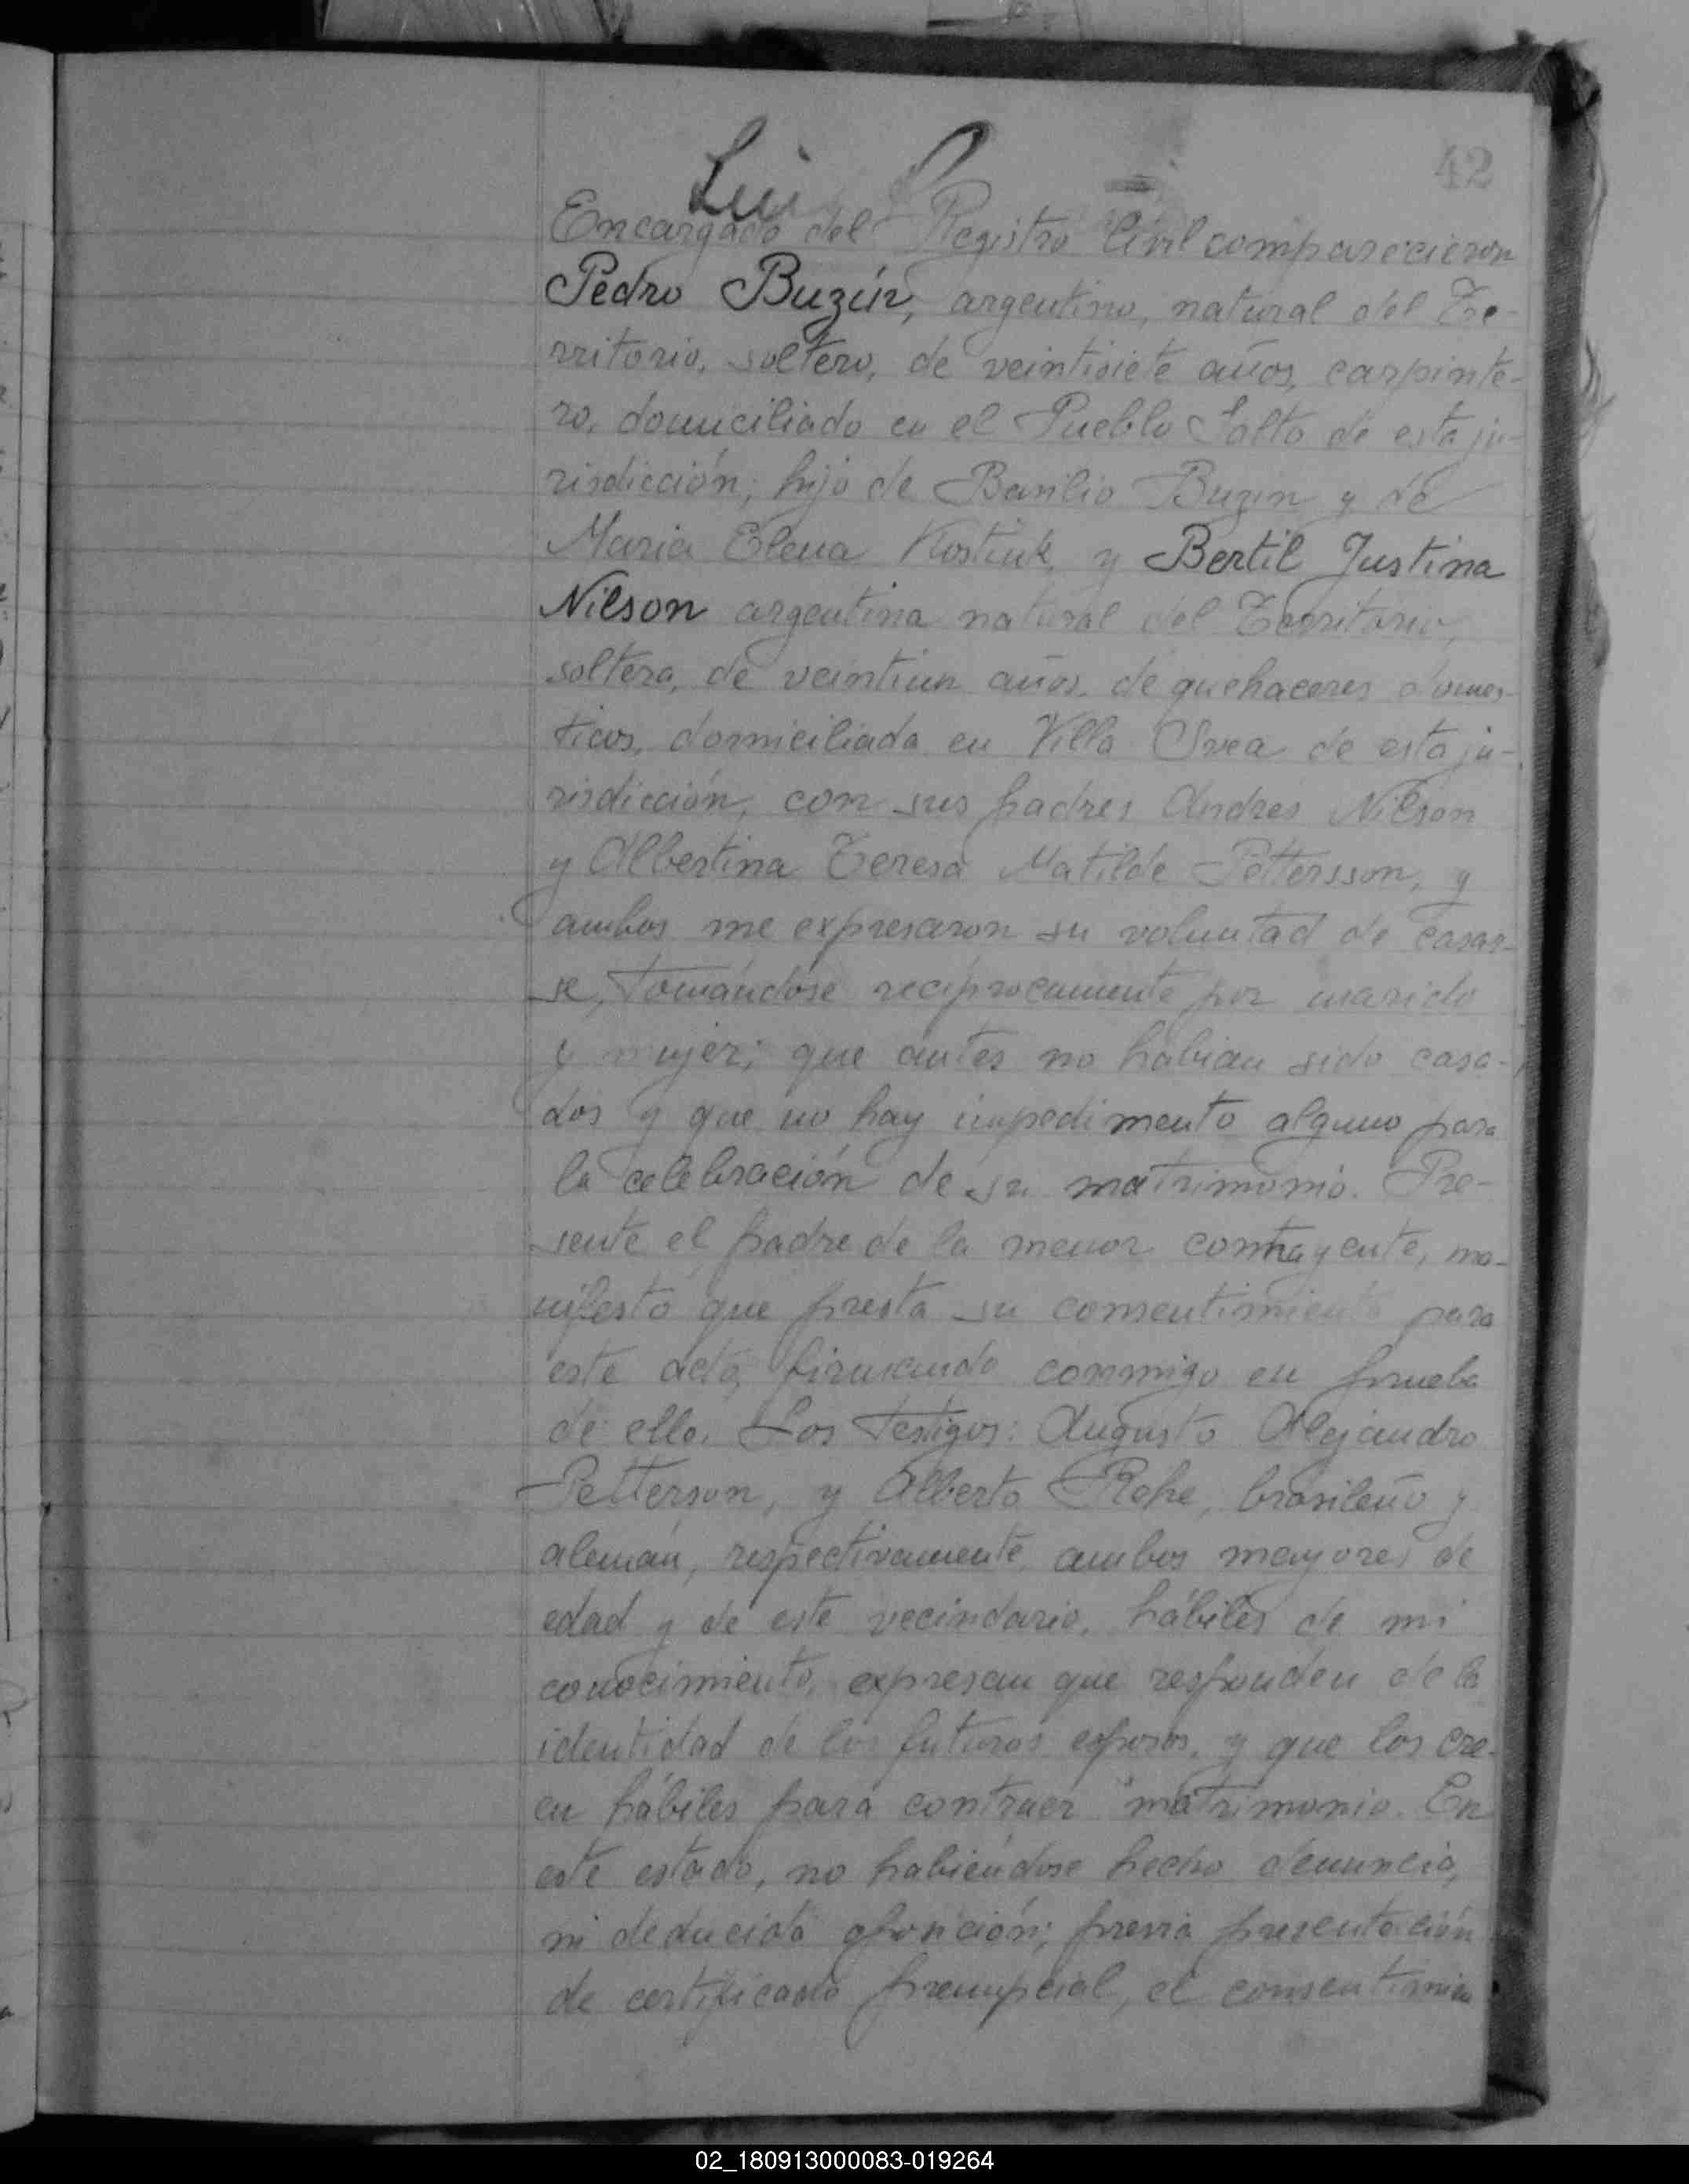 42
Encargado del Registro Civil comparecieron
Pedro Buzín, argentino, natural del Te-
rritorio, soltero, de veintisiete años, carpinte-
ro, domiciliado en el Pueblo Salto de esta ju-
risdicción; hijo de Basilio Buzin y de
Maria Elena Kostiuk y Bertil Justina
Nilson argentina natural del Territorio,
soltera, de veintiun años, de quehaceres domes-
ticos, domiciliada en Villa Svea de esta ju-
risdicción, con sus padres Andres Nilson
y Albertina Teresa Matilde Pettersson, y
ambos me expresaron su voluntad de casar-
se, tomándose reciprocamente por marido
y mujer; que antes no habian sido casa-
dos y que no hay impedimento alguno para
la celebración de su matrimonio. Pre-
sente el padre de la menor contrayente, ma-
nifestó que presta su consentimiento para
este acto, firmando conmigo en prueba
de ello. Los testigos: Augusto Alejandro
Petterson, y Alberto Rohe, brasileño y
alemán, respectivamente, ambos mayores de
edad y de este vecindario, hábiles de mi
conocimiento, expresan que responden de la
identidad de los futuros esposos, y que los cre-
en hábiles para contraer matrimonio. En
este estado, no habiéndose hecho denuncia,
ni deducido oposición; previa presentación
de certificado prenupcial, el consentimien
02_180913000083-019264